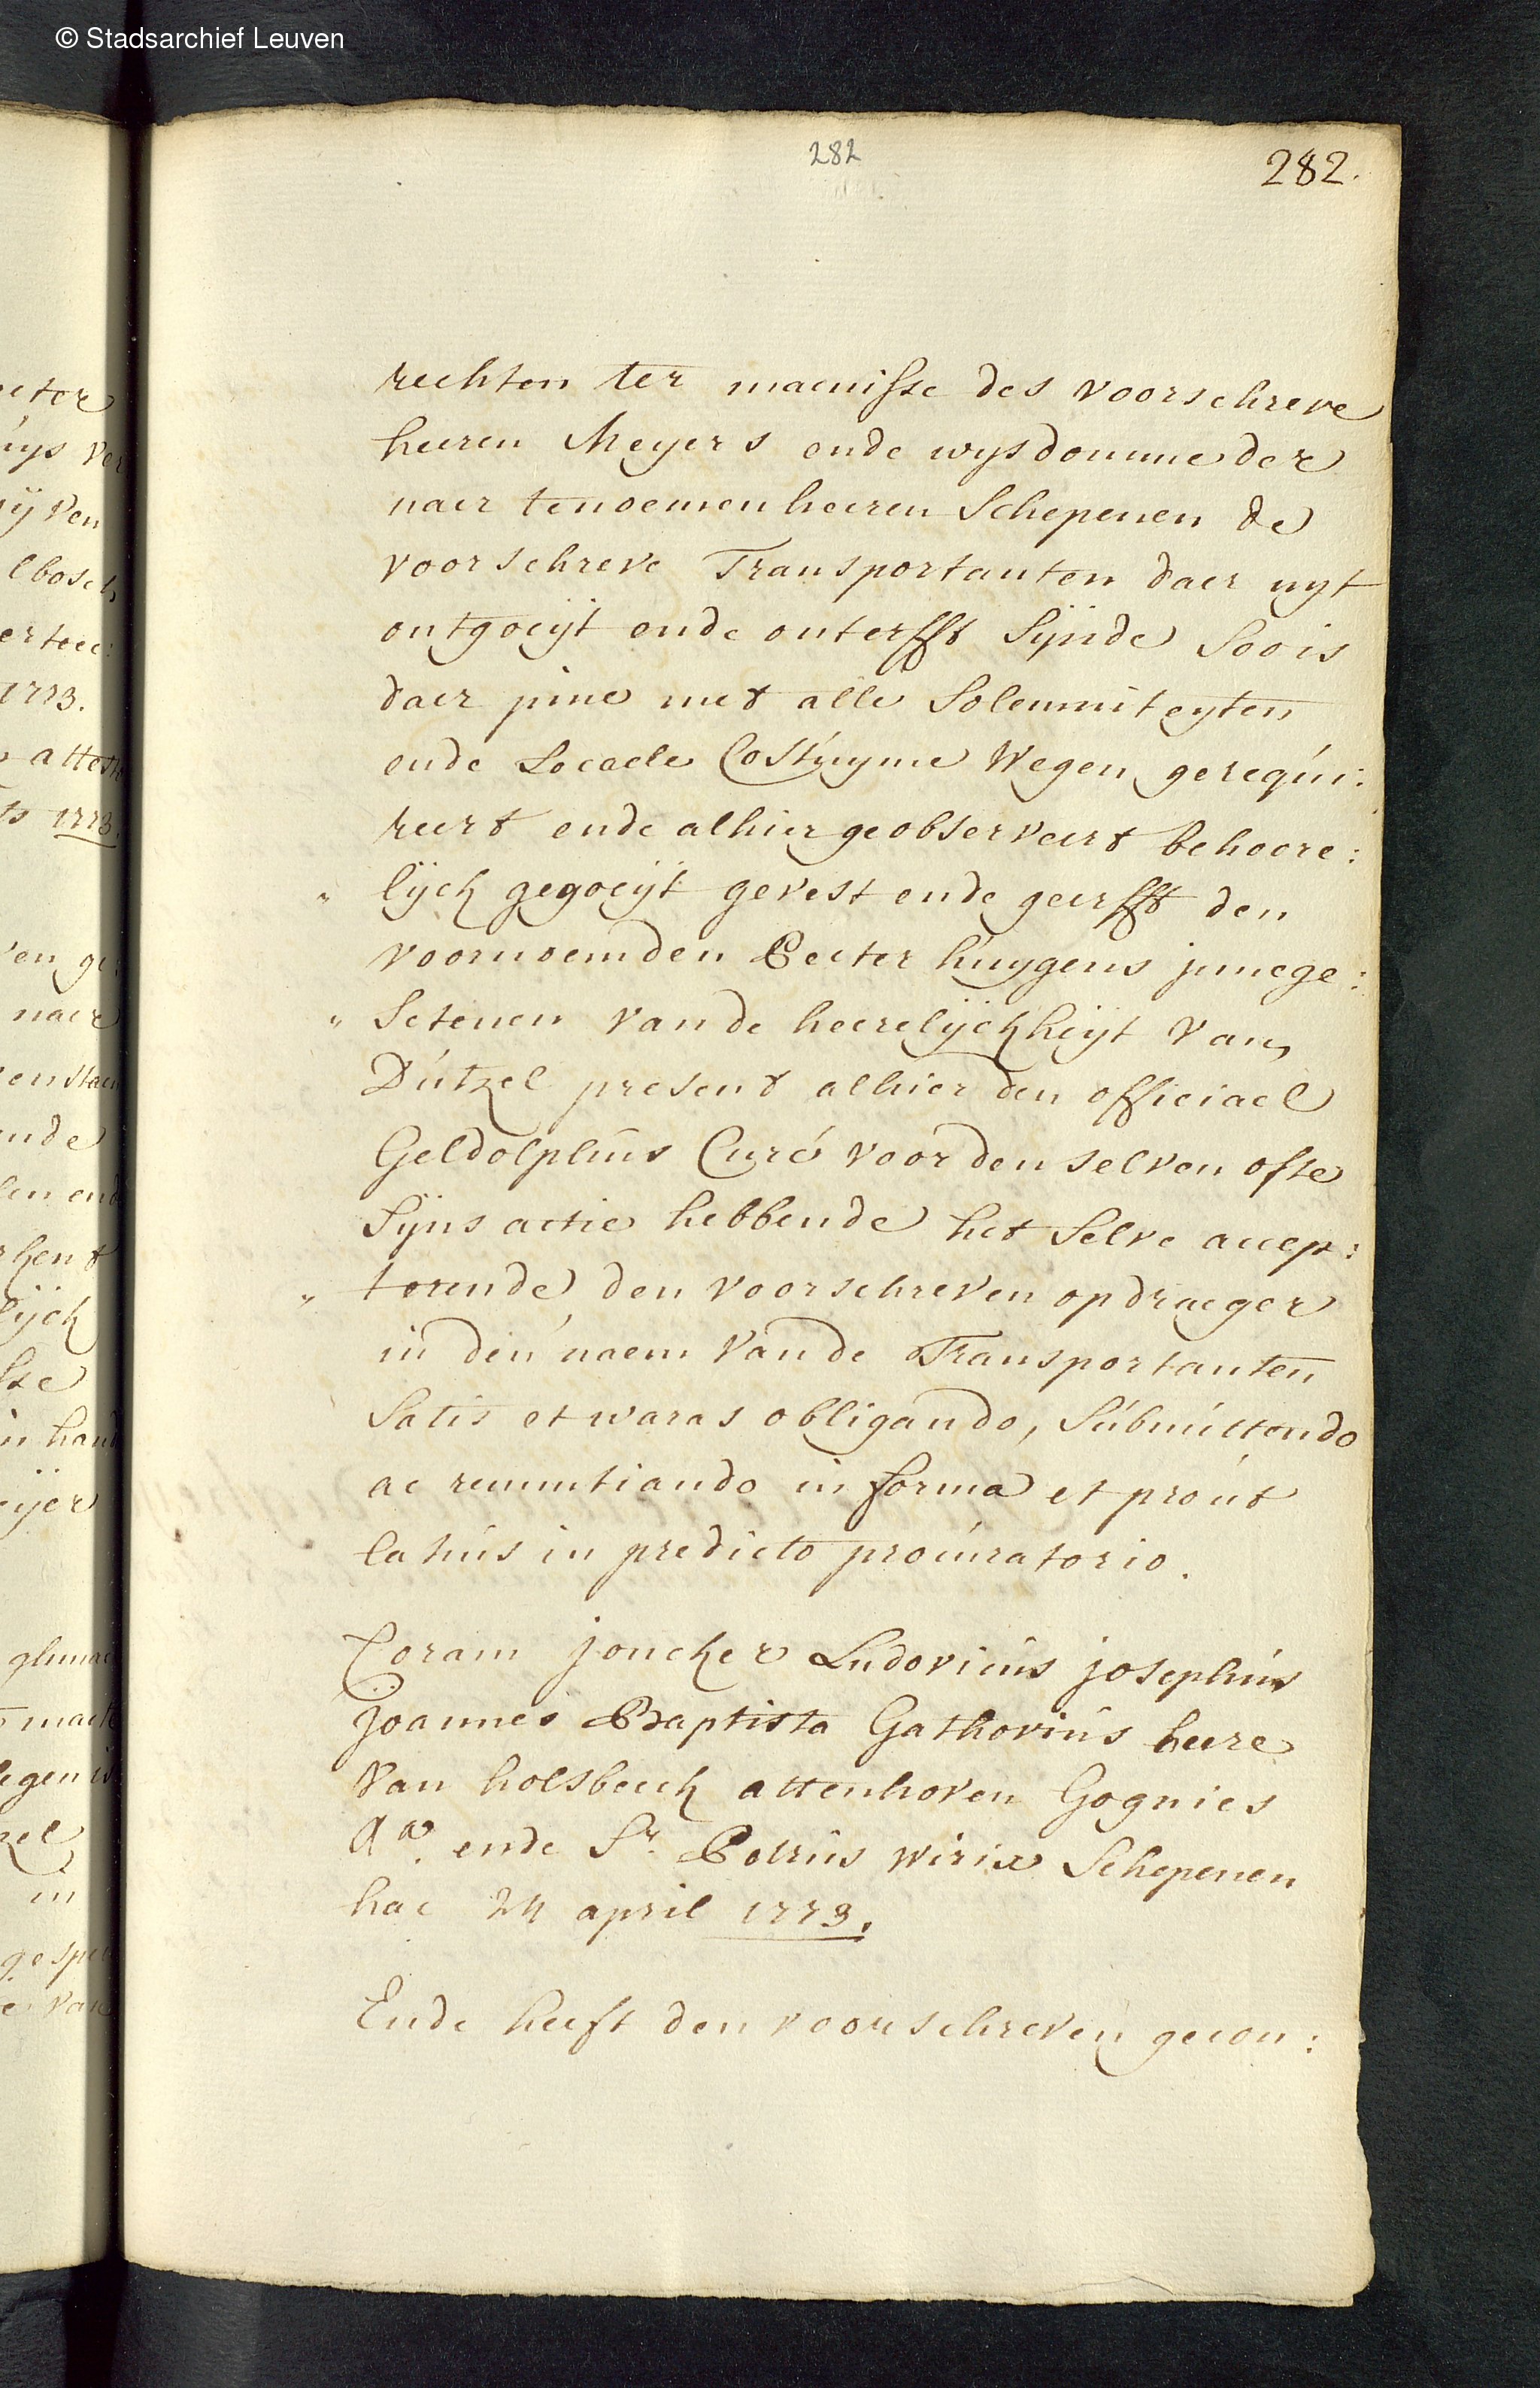 © Stadsarchief Leuven
282
282.
rechten ter maenisse des voorschreve
heeren Meyers ende wysdomme der
naer tenoemen heeren Schepenen de
voorschreve Transportanten daer uyt
ontgoeijt ende onterfft sijnde soo is
daer inne met alle solemniteyten
ende Locaele Costuyme wegen gerequi:
reert ende alhier geobserveert behoore:
" lijck gegoeijt gevest ende geerfft den
voornoemden Peeter huygens innege:
" setenen vande heerelijckheijt van
Dutzel present alhier den officiael
Geldolphus Curé voor den selven ofte
sijns actie hebbende het selve accep:
" terende den voorschreven opdraeger
in den naem vande Transportanten
satis et waras obligando, submittendo
ac renuntiando in forma et prout
latius in predicto procuratorio.
Coram joncker Ludovicus josephus
joannes Baptista Gathovius heere
van holsbeeck attenhoven Gognies
&a. ende Sr. Petrus wirix Schepenen
hac 24 april 1773.
Ende heeft den voorschreven gecon: